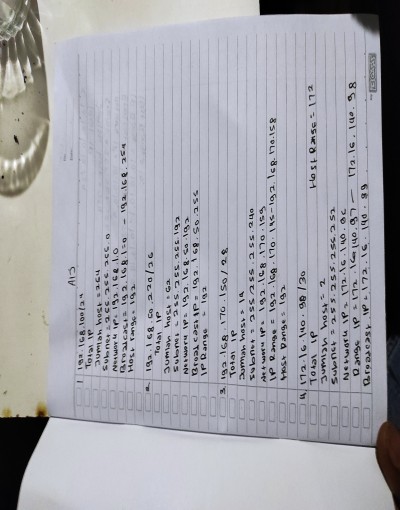 AIJ
1. 192.168.100/24
Total IP
Jumlah host = 254
Subnet = 255.255.255.0
Network IP = 192.168.1.0
Broadcast = 192.168.1.0 - 192.168.254
Host range = 192
2. 192.168.50.220/26
Total IP
Jumlah host = 62
Subnet = 255.255.255.192
Network IP = 192.168.50.192
Broadcast = 192.168.50.255
IP Range = 192
3. 192.168.170.150/28
Total IP
Jumlah host = 14
Subnet = 255.255.255.240
Network IP = 192.168.170.159
IP Range = 192.168.170.145-192.168.170.158
Host Range = 192
4. 172.16.140.98/30
Total IP
Jumlah host = 2
Host Range = 172
Subnet = 255.255.255.252
Network IP = 172.16.140.96
Range IP = 172.16.140.97 - 172.16.140.98
Broadcast IP = 172.16.140.99